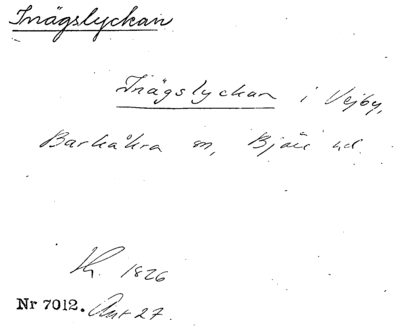 Inägslyckan
Inägslyckan i Vejby,
Barkåkra sn, Bjäre hd.
Sk. 1826
Nr 7012. Ant 27.